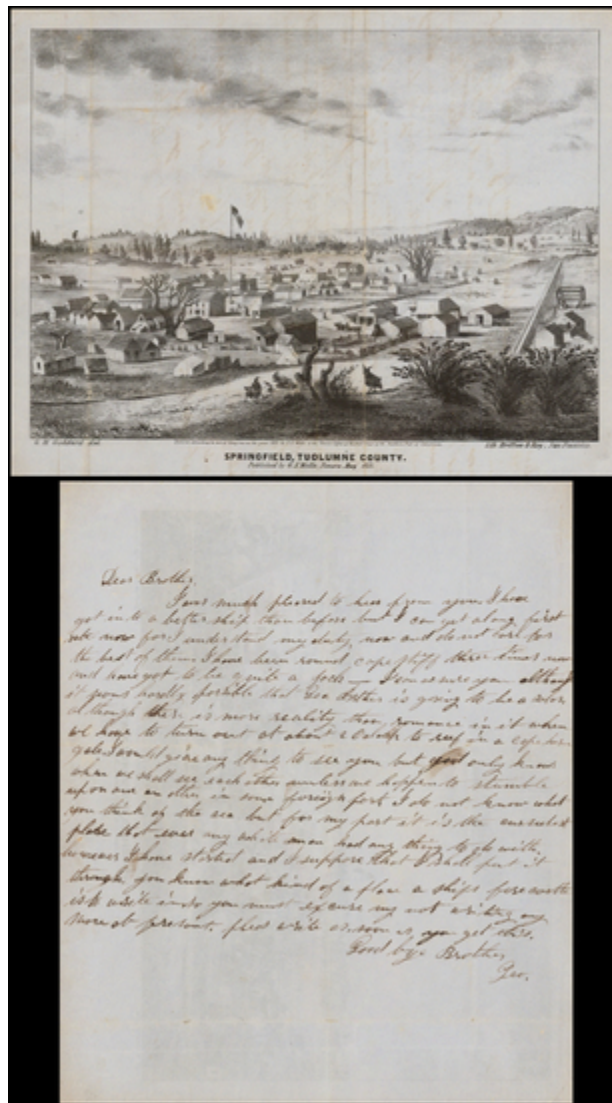 SPRINGFIELD, TUOLUMNE COUNTY.
Dear Brother,
I was much pleased to hear from you I have
got into a better ship than before but I can get along first
rate now for I understand my duty now and do not care for
the best of them I have been round cape stiff three times now
and have got to be quite a
it seems hardly possible that
is going to be a
although there is more reality than romance in it when
we have to turn out at about 2 oclock to reef in a cape horn
gale I would give any thing to see you but god only knows
when we shall see each other unless we happen to stumble
upon one an other in some foreign port I do not know what
you think of the sea but for my part it is the
place that ever any white man had any thing to do with,
however I have started and I suppose that I shall put it
through you know what kind of a place a ships
is to write in so you must excuse my not writing any
more at present. pleas write as soon as you get this.
Good bye Brother,
Geo.